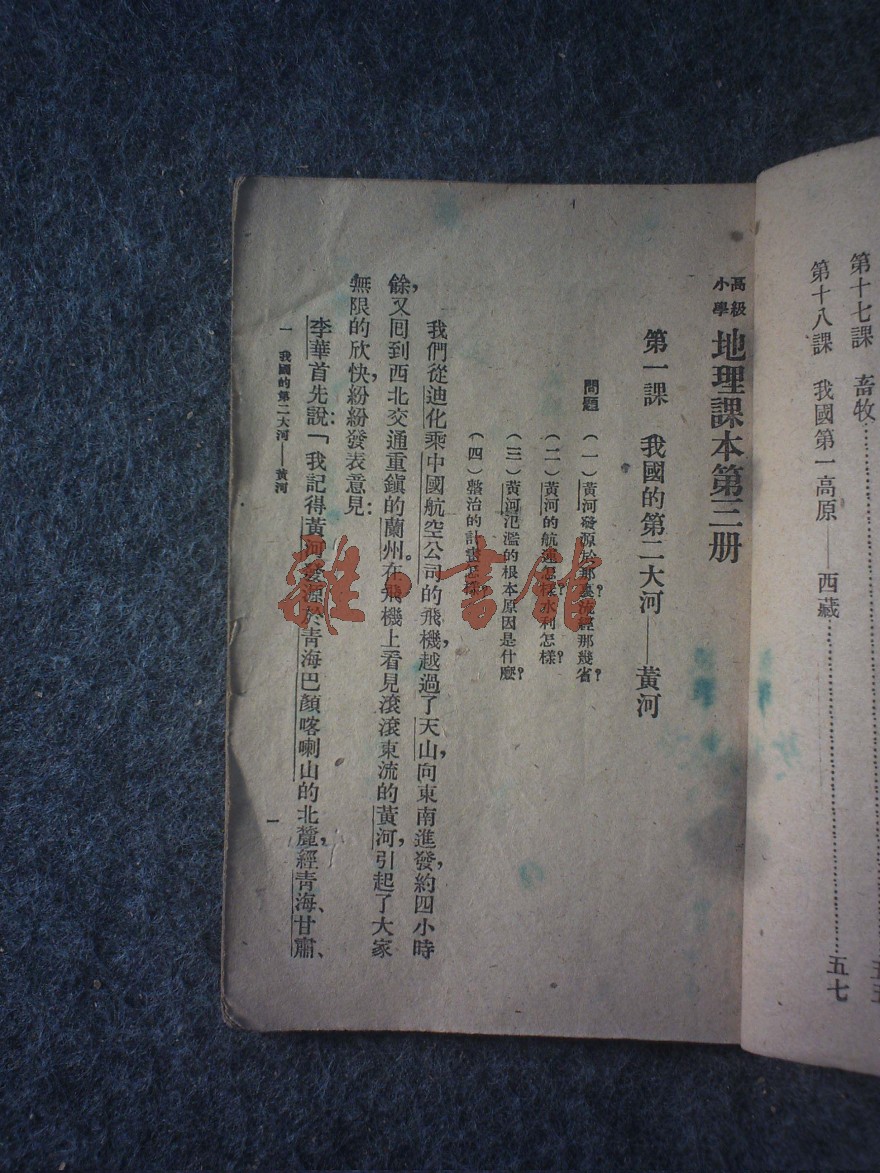 第十七課　畜牧……………
第十八課　我國第一高原——西藏……………五七
高級小學 地理課本第三册
第一課　我國的第二大河——黃河
問題　(一)黃河發源於那裏？流經那幾省？
(二)黃河的航運怎樣？水利怎樣？
(三)黃河氾濫的根本原因是什麼？
(四)整治的計畫怎樣？
我們從迪化乘中國航空公司的飛機，越過了天山，向東南進發，約四小時
餘，又回到西北交通重鎮的蘭州。在飛機上看見滾滾東流的黃河，引起了大家
無限的欣快，紛紛發表意見：
李華首先說：「我記得黃河發源於青海巴顏喀喇山的北麓，經青海、甘肅、
一　我國的第二大河——黃河
一
雜·書館